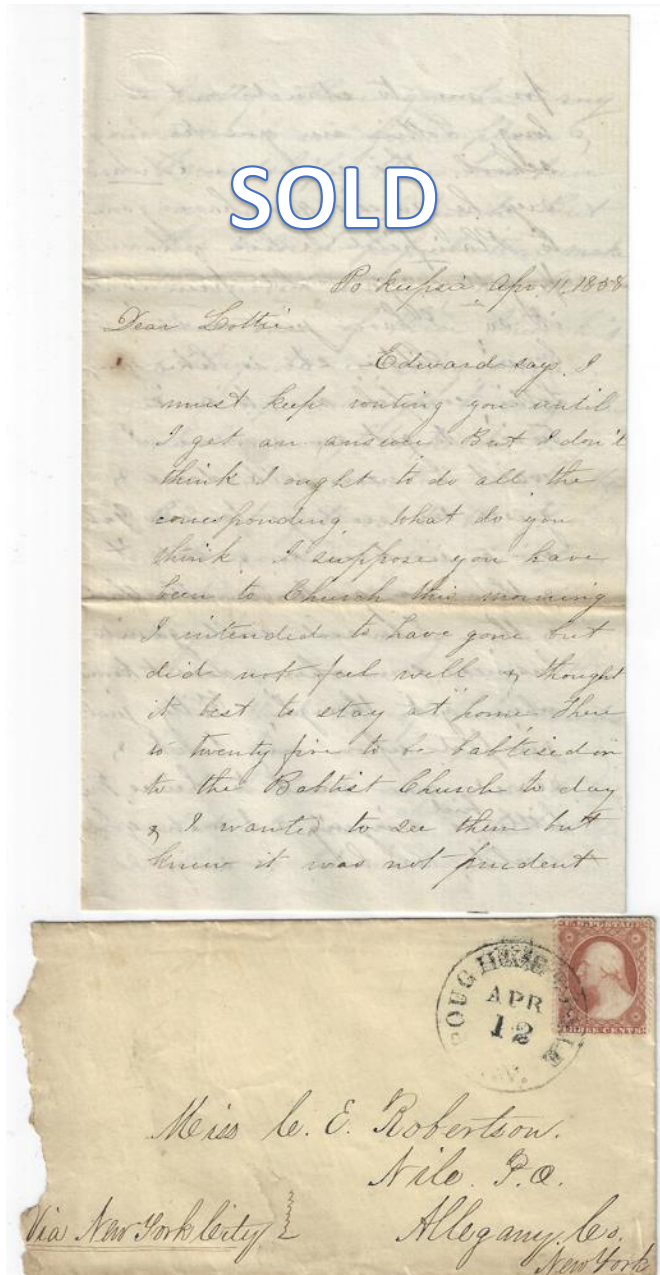 SOLD
Po'keepsie, Apr. 11, 1858
Dear Lottie
Edward says I
must keep writing you until
I get an answer But I don't
think I ought to do all the
corresponding. What do you
think. I suppose you have
been to Church this morning
I intended to have gone but
did not feel well & thought
it best to stay at home. There
is twenty five to be babtised in
to the Babtist Church to day
& I wanted to see them but
knew it was not prudent
POUGHKEEPSIE
APR
12
N.Y.
THREE CENTS
Miss C. E. Robertson.
Nile P.O.
Via New York City
Allegany Co.
New York